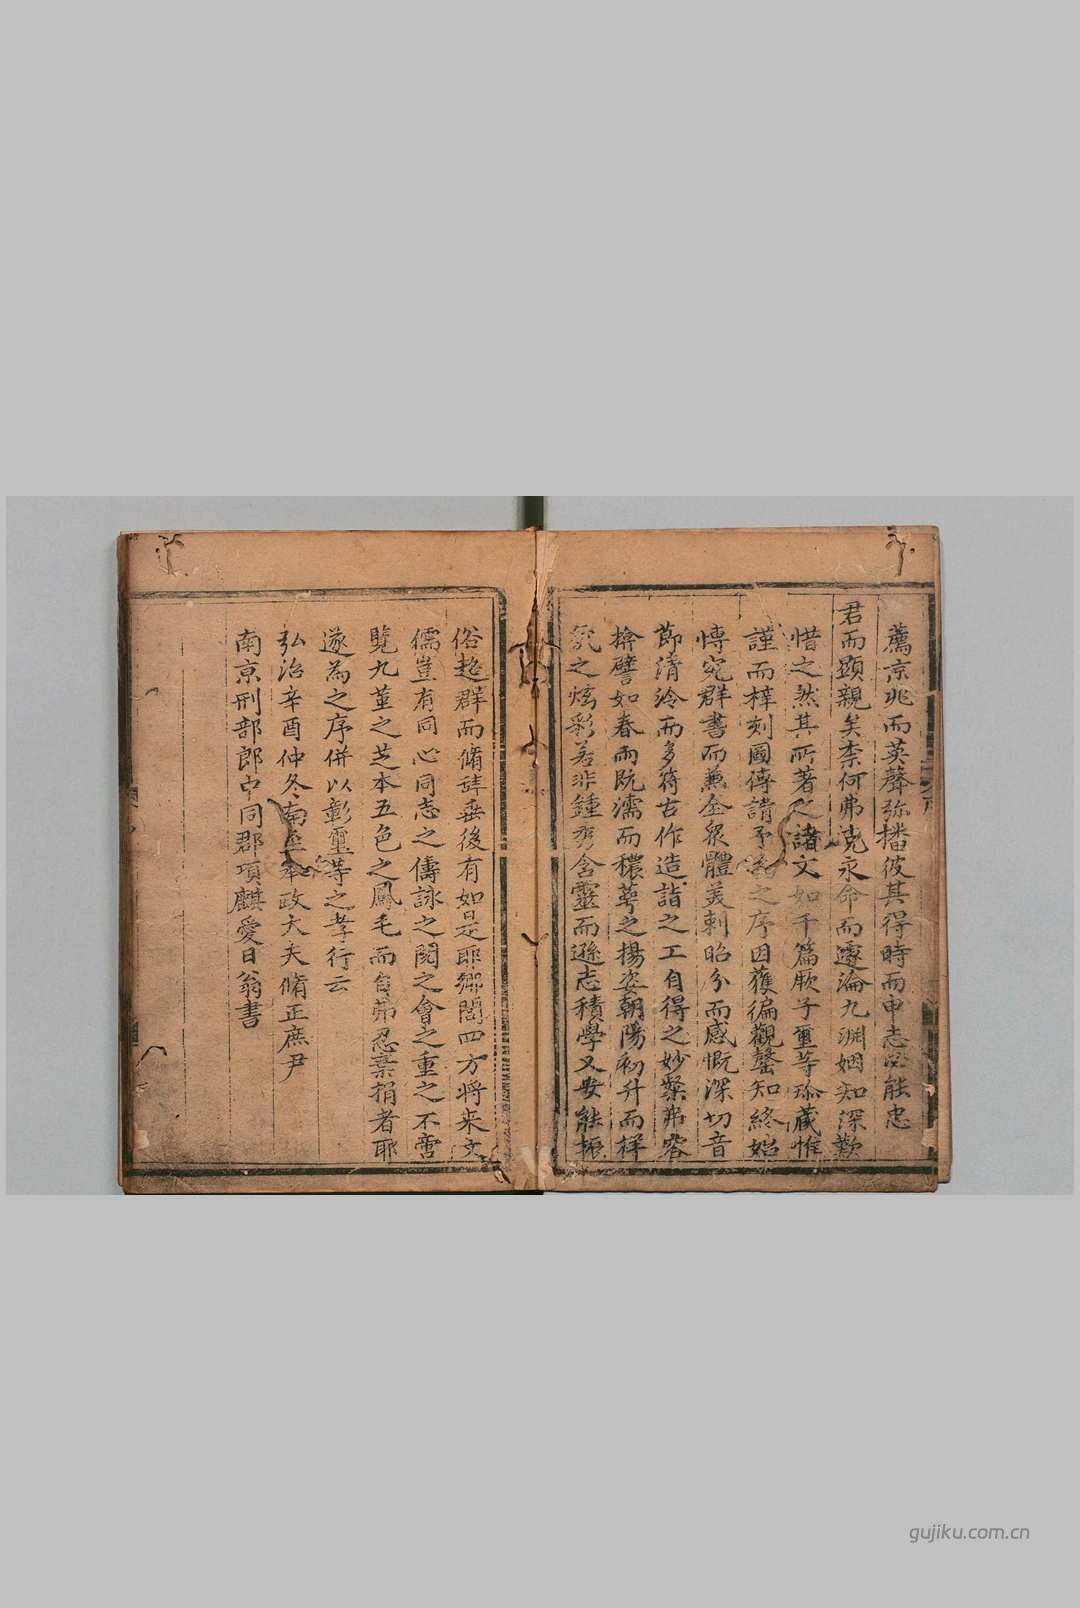 薦京兆而英聲弥播彼其得時而申志必能忠
君而顯親矣柰何弗克永命而遽淪九淵姻知深歎
惜之然其所著之諸文如千篇厥子璽等珍藏惟
謹而梓刻圖傳請予為之序因獲徧觀罄知終始
博究群書而兼全衆體美刺昭分而感慨深切音
節清泠而多符古作造詣之工自得之妙槩弗容
揜譬如春雨既濡而穠萼之揚姿朝陽初升而祥
雲之炫彩若非鍾秀含靈而遜志積學又安能振
俗超群而脩辞垂後有如是耶鄉閭四方将来文
儒豈有同心同志之儔詠之閱之會之重之不啻
覽九莖之芝本五色之鳳毛而自弗忍棄捐者耶
遂為之序併以彰璽等之孝行云
弘治辛酉仲冬南至奉政大夫脩正庶尹
南京刑部郎中同郡項麒愛日翁書
gujiku.com.cn